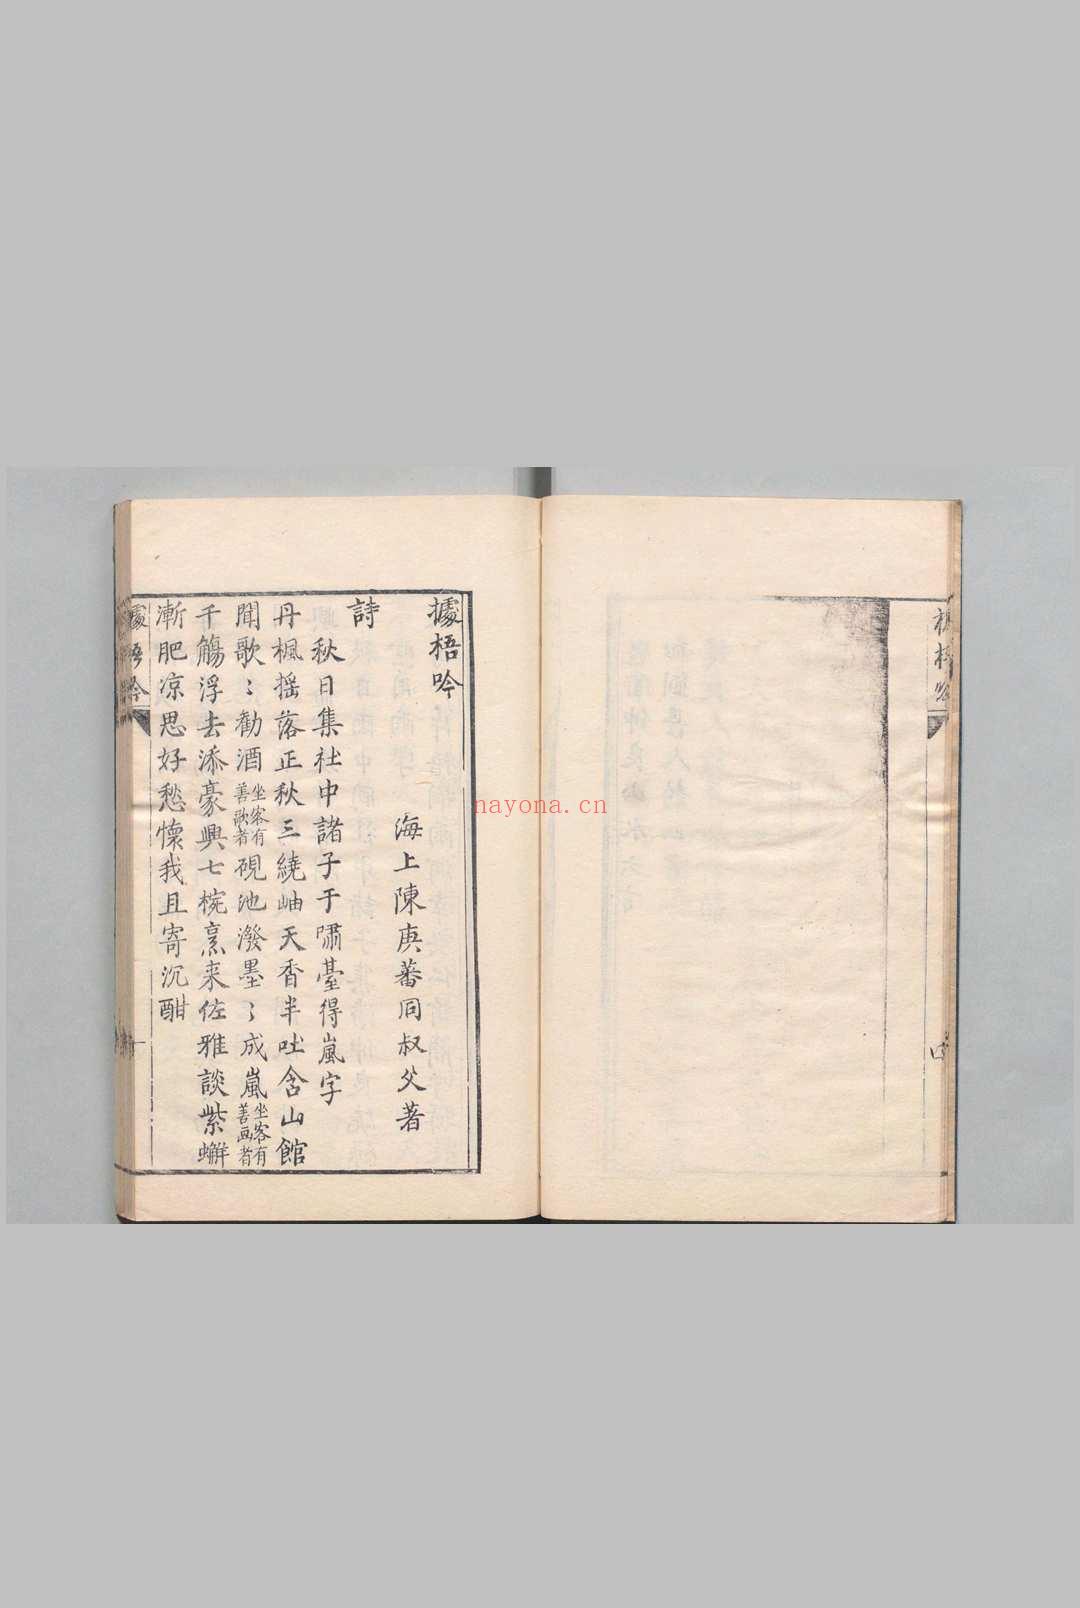 據梧吟
海上陳庚蕃同叔父著
詩
秋日集社中諸子于嘯臺得嵐字
丹楓搖落正秋三繞岫天香半吐含山館
聞歌〻勸酒坐客有善歌者硯池潑墨〻成嵐坐客有善画者
千觴浮去添豪興七椀烹来佐雅談紫蠏
漸肥凉思好愁懷我且寄沉酣
據梧吟
一
四
nayona.cn